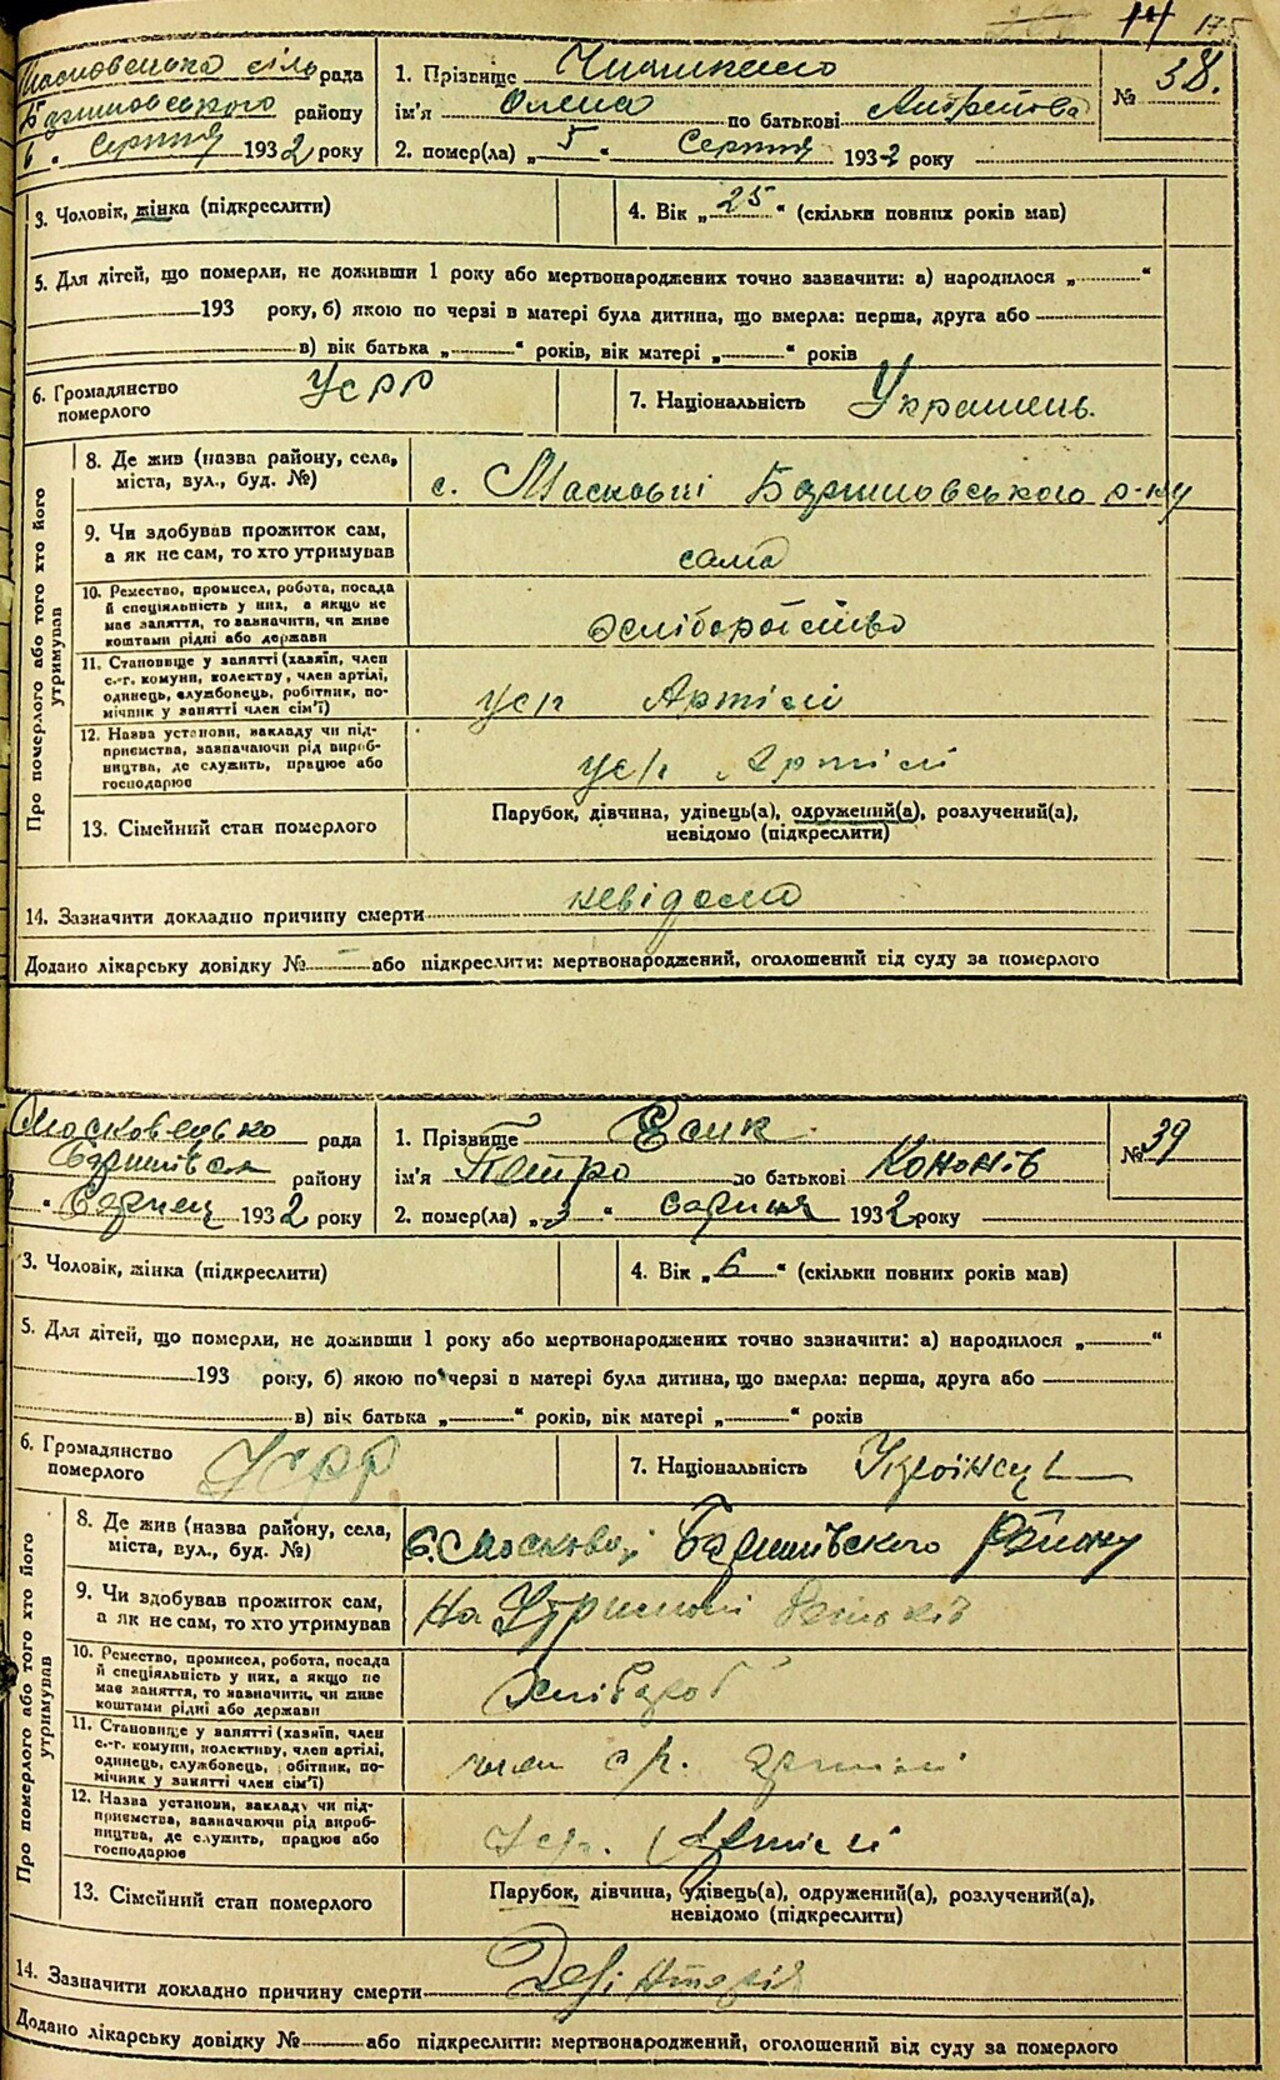 14 175
рада
району
6 " Серпня 1932 року
1. Прізвище
ім'я Олена по батькові Андреівна
2. помер(ла) „ 5 “ Серпня 1932 року
№ 38.
3. Чоловік, жінка (підкреслити)
4. Вік „ 25 “ (скільки повних років мав)
5. Для дітей, що померли, не доживши 1 року або мертвонароджених точно зазначити: а) народилося „ “
193 року, б) якою по черзі в матері була дитина, що вмерла: перша, друга або
в) вік батька „ “ років, вік матері „ “ років
6. Громадянство
померлого
УСРР
7. Національність Украінець.
Про померлого або того хто його
утримував
8. Де жив (назва району, села,
міста, вул., буд. №)
с. Масковці Баришовського р-ну
9. Чи здобував прожиток сам,
а як не сам, то хто утримував
сама
10. Ремество, промисел, робота, посада
й спеціяльність у них, а якщо не
має заняття, то зазначити, чи живе
коштами рідні або держави
хліборобство
11. Становище у занятті (хазяїн, член
с.-г. комуни, колективу, член артілі,
одинець, службовець, робітник, по-
мічник у занятті член сім'ї)
Артілі
12. Назва установи, закладу чи під-
приємства, зазначаючи рід вироб-
ництва, де служить, працює або
господарює
Артілі
13. Сімейний стан померлого
Парубок, дівчина, удівець(а), одружений(а), розлучений(а),
невідомо (підкреслити)
14. Зазначити докладно причину смерти невідома
Додано лікарську довідку № — або підкреслити: мертвонароджений, оголошений від суду за померлого
рада
району
" Серпня 1932 року
1. Прізвище
ім'я Петро по батькові Кононів
2. помер(ла) „ 3 “ серпня 1932 року
№ 39
3. Чоловік, жінка (підкреслити)
4. Вік „ 6 “ (скільки повних років мав)
5. Для дітей, що померли, не доживши 1 року або мертвонароджених точно зазначити: а) народилося „ “
193 року, б) якою по черзі в матері була дитина, що вмерла: перша, друга або
в) вік батька „ “ років, вік матері „ “ років
6. Громадянство
померлого
УСРР
7. Національність Українець
Про померлого або того хто його
утримував
8. Де жив (назва району, села,
міста, вул., буд. №)
с. Масковці Баришівського району
9. Чи здобував прожиток сам,
а як не сам, то хто утримував
На Утриманні батьків
10. Ремество, промисел, робота, посада
й спеціяльність у них, а якщо не
має заняття, то зазначити, чи живе
коштами рідні або держави
Хлібороб
11. Становище у занятті (хазяїн, член
с.-г. комуни, колективу, член артілі,
одинець, службовець, обітник, по-
мічник у занятті член сім'ї)
член с/г. артілі
12. Назва установи, закладу чи під-
приємства, зазначаючи рід вироб-
ництва, де служить, працює або
господарює
Артілі
13. Сімейний стан померлого
Парубок, дівчина, удівець(а), одружений(а), розлучений(а),
невідомо (підкреслити)
14. Зазначити докладно причину смерти
Додано лікарську довідку № або підкреслити: мертвонароджений, оголошений від суду за померлого